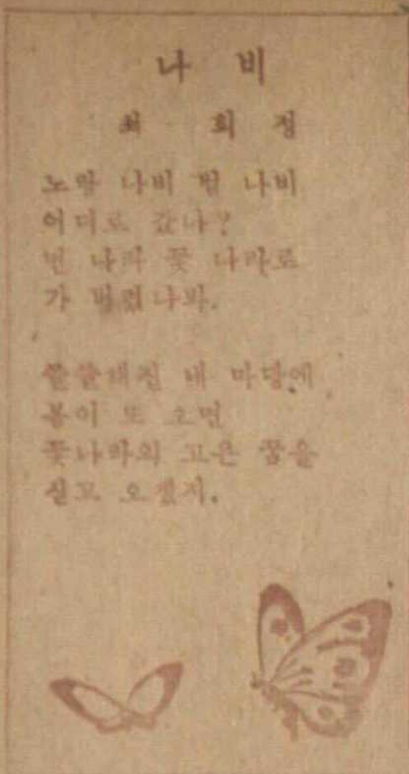 나 비
최 희 정
노랑 나비 범 나비
어디로 갔나?
먼 나라 꽃 나라로
가 버렸나봐.
쓸쓸해진 내 마당에
봄이 또 오면
꽃나라의 고운 꿈을
싣고 오겠지.